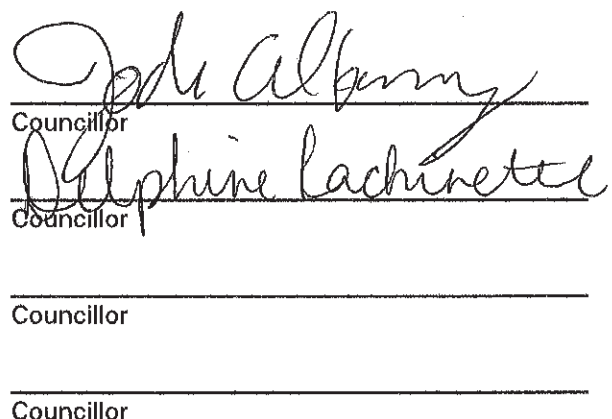 Jodi Albany
Councillor
Delphine Lachinette
Councillor
Councillor
Councillor